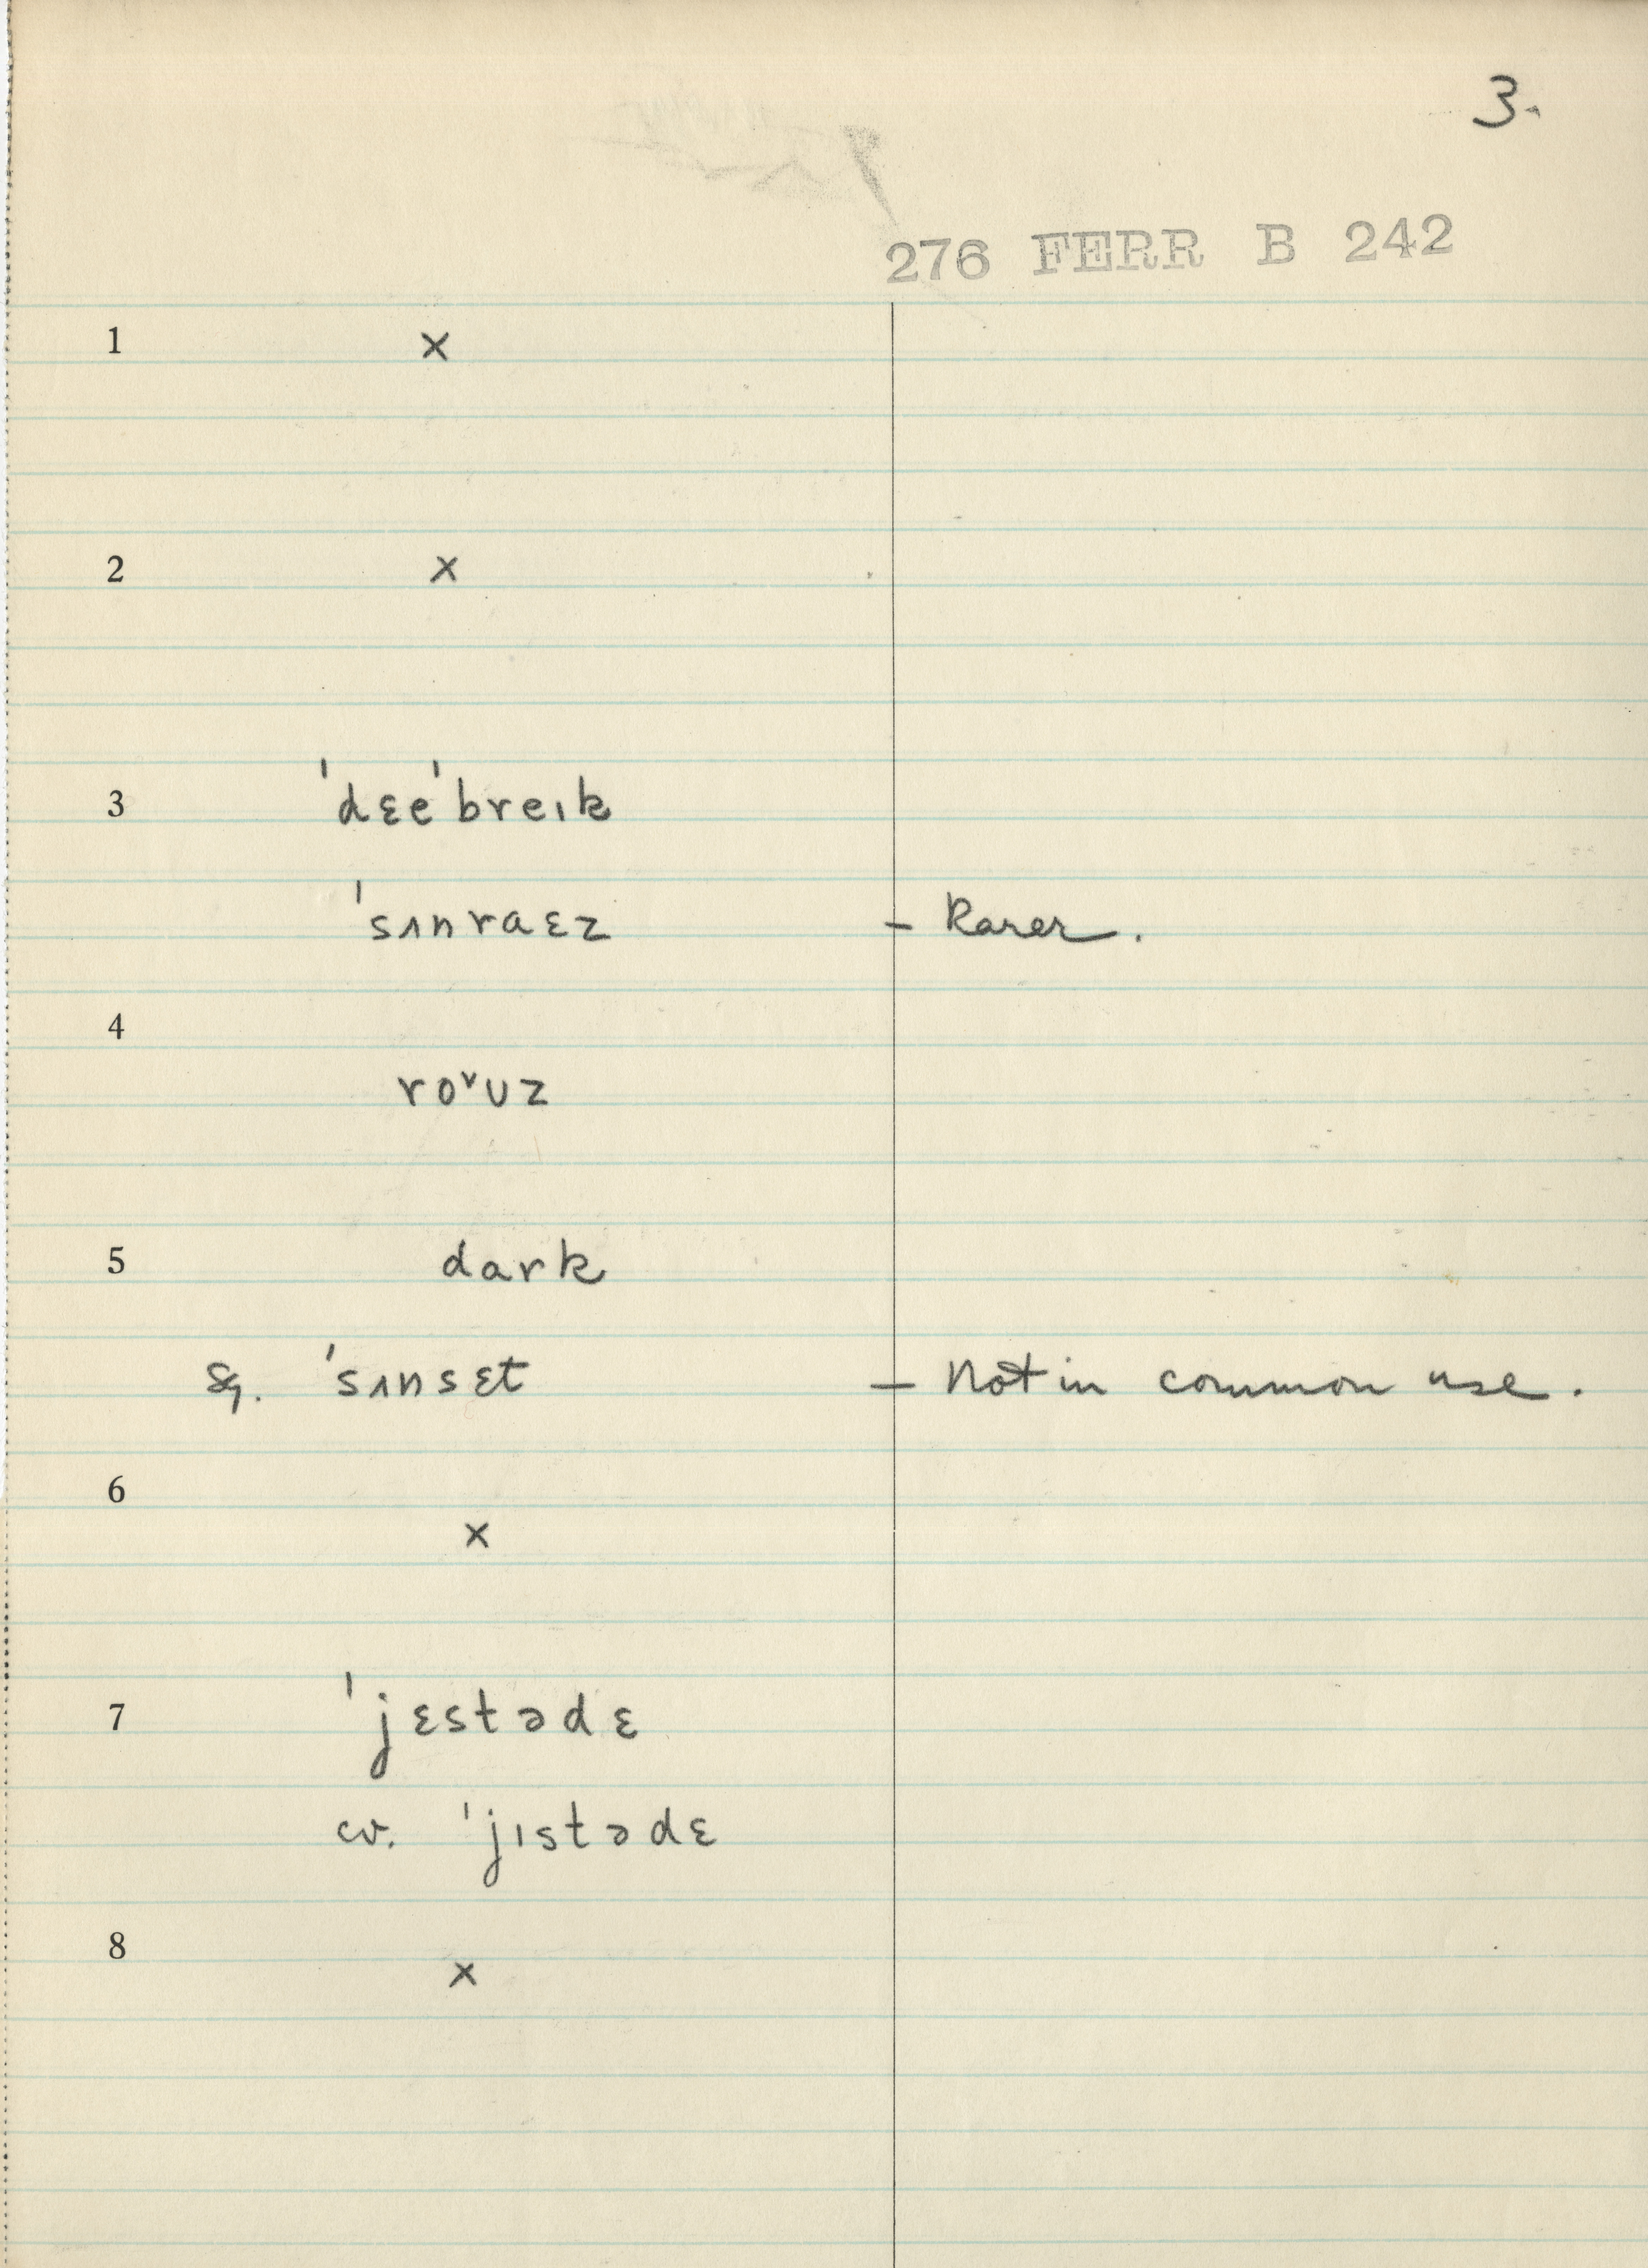 3.
276 FERR B 242
1 ×
2 ×
3 ˈdɛeˈbreɩk
ˈsʌnraɛz – Rarer.
4
roˇʊz
5 dark
sg. ˈsʌnsɛt – Not in common use.
6
×
7 ˈjɛstədɛ
cv. ˈjɩstədɛ
8 ×